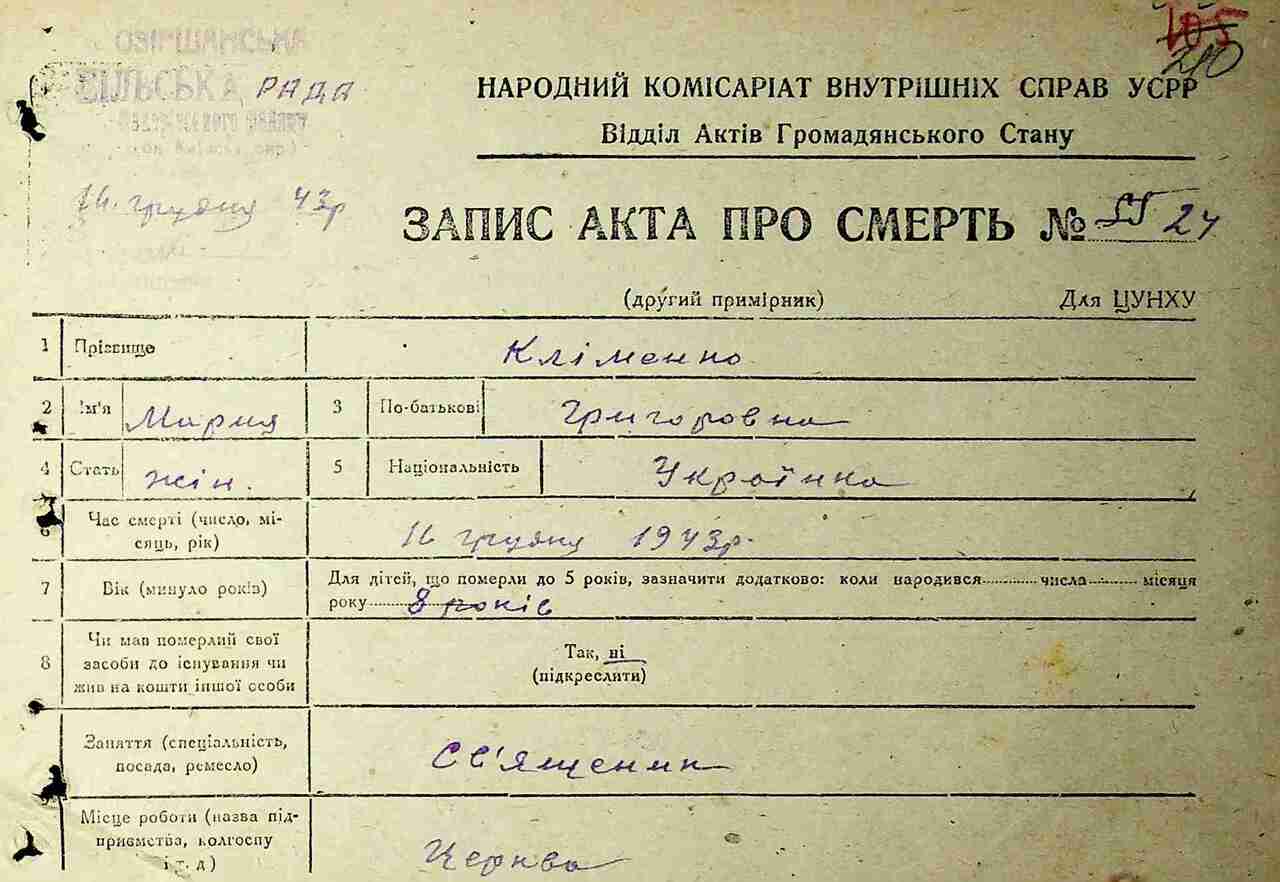 СІЛЬСЬКА РАДА
105
210
НАРОДНИЙ КОМІСАРІАТ ВНУТРІШНІХ СПРАВ УСРР
Відділ Актів Громадянського Стану
16. грудня 43р
ЗАПИС АКТА ПРО СМЕРТЬ № 24
(другий примірник) Для ЦУНХУ
1 Прізвище Кліменко
2 Ім'я Мария 3 По-батькові Григоровна
4 Стать жін. 5 Національність Українка
6 Час смерті (число, мі-
сяць, рік) 16 грудня 1943р.
7 Вік (минуло років) Для дітей, що померли до 5 років, зазначити додатково: коли народився числа місяця
року 8 років
8 Чи мав померлий свої
засоби до існування чи
жив на кошти іншої особи
Так, ні
(підкреслити)
Заняття (спеціальність,
посада, ремесло) Св'ященик
Місце роботи (назва під-
приємства, колгоспу
і т. д) Церква